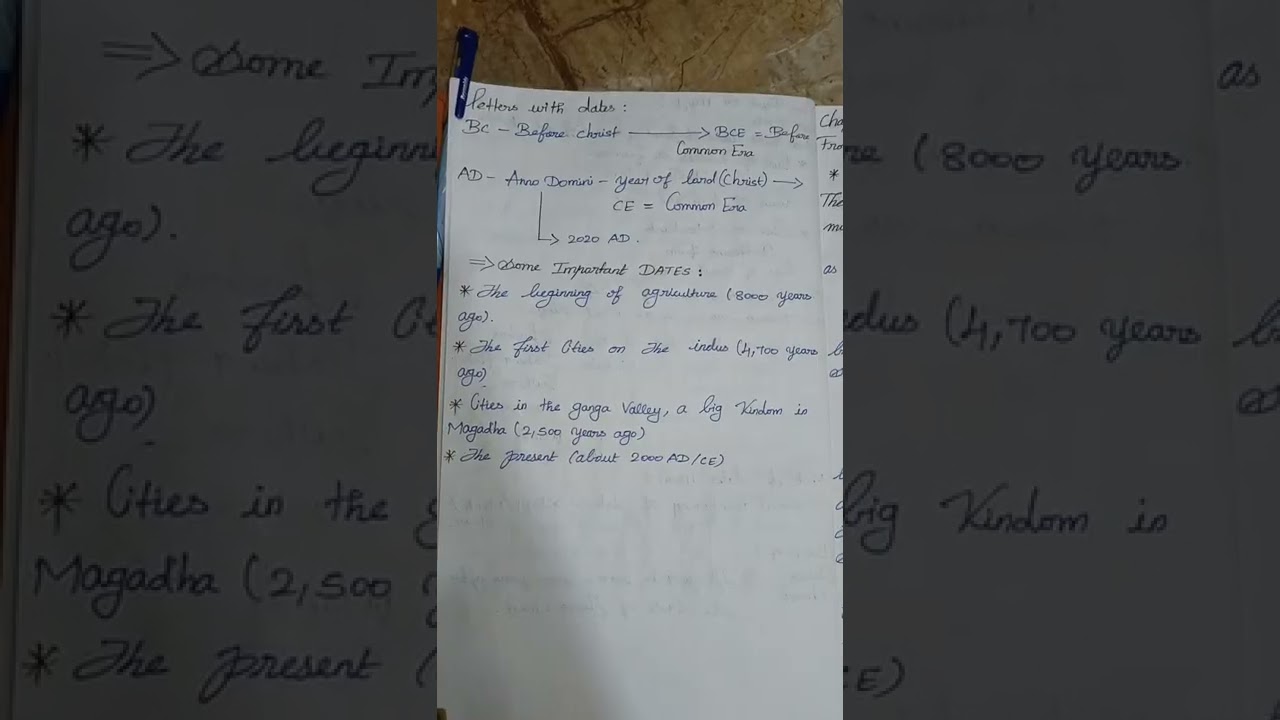 letters with dates :
BC - Before christ → BCE = Before
Common Era
AD - Anno Domini - year of lard (Christ) →
CE = Common Era
↳ 2020 AD.
⇒ Some Important DATES :
* The beginning of agriculture (8000 years
ago).
* The first Cities on The indus (4,700 years
ago)
* Cities in the ganga Valley, a big Kindom in
Magadha (2,500 years ago)
* The present (about 2000 AD/CE)